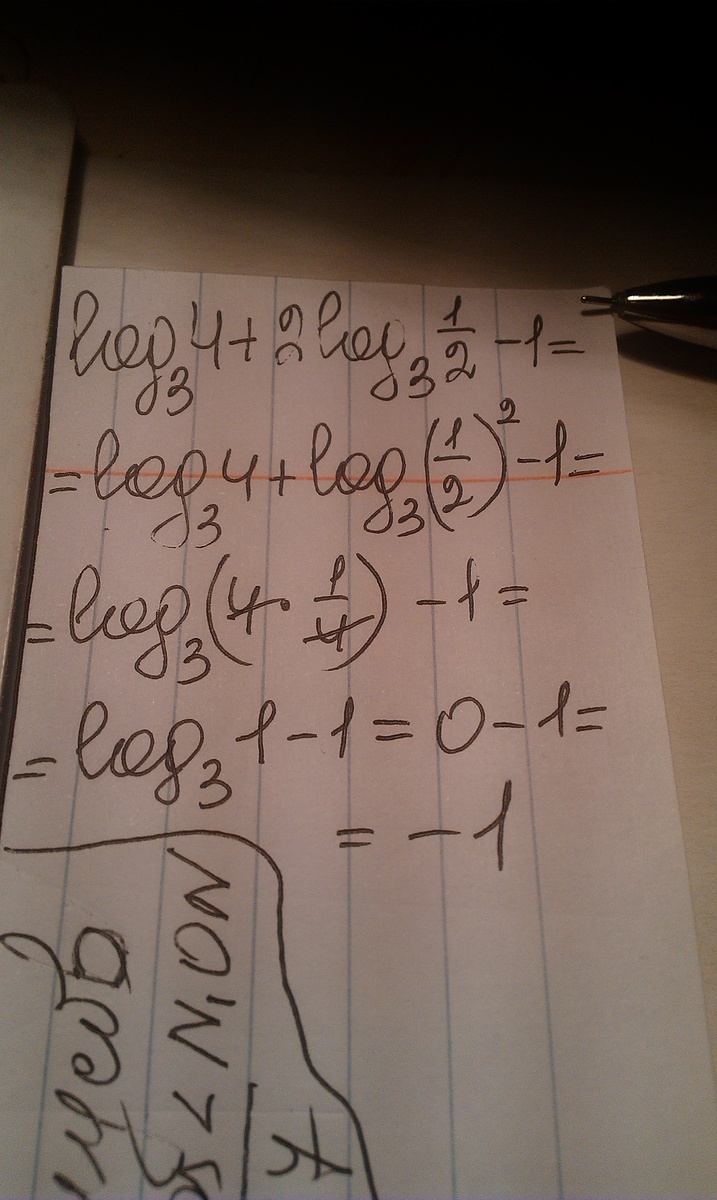 log₃4+2log₃ 1/2 -1=
=log₃4+log₃(1/2)²-1=
=log₃(4·1/4) -1=
=log₃1-1=0-1=
=-1